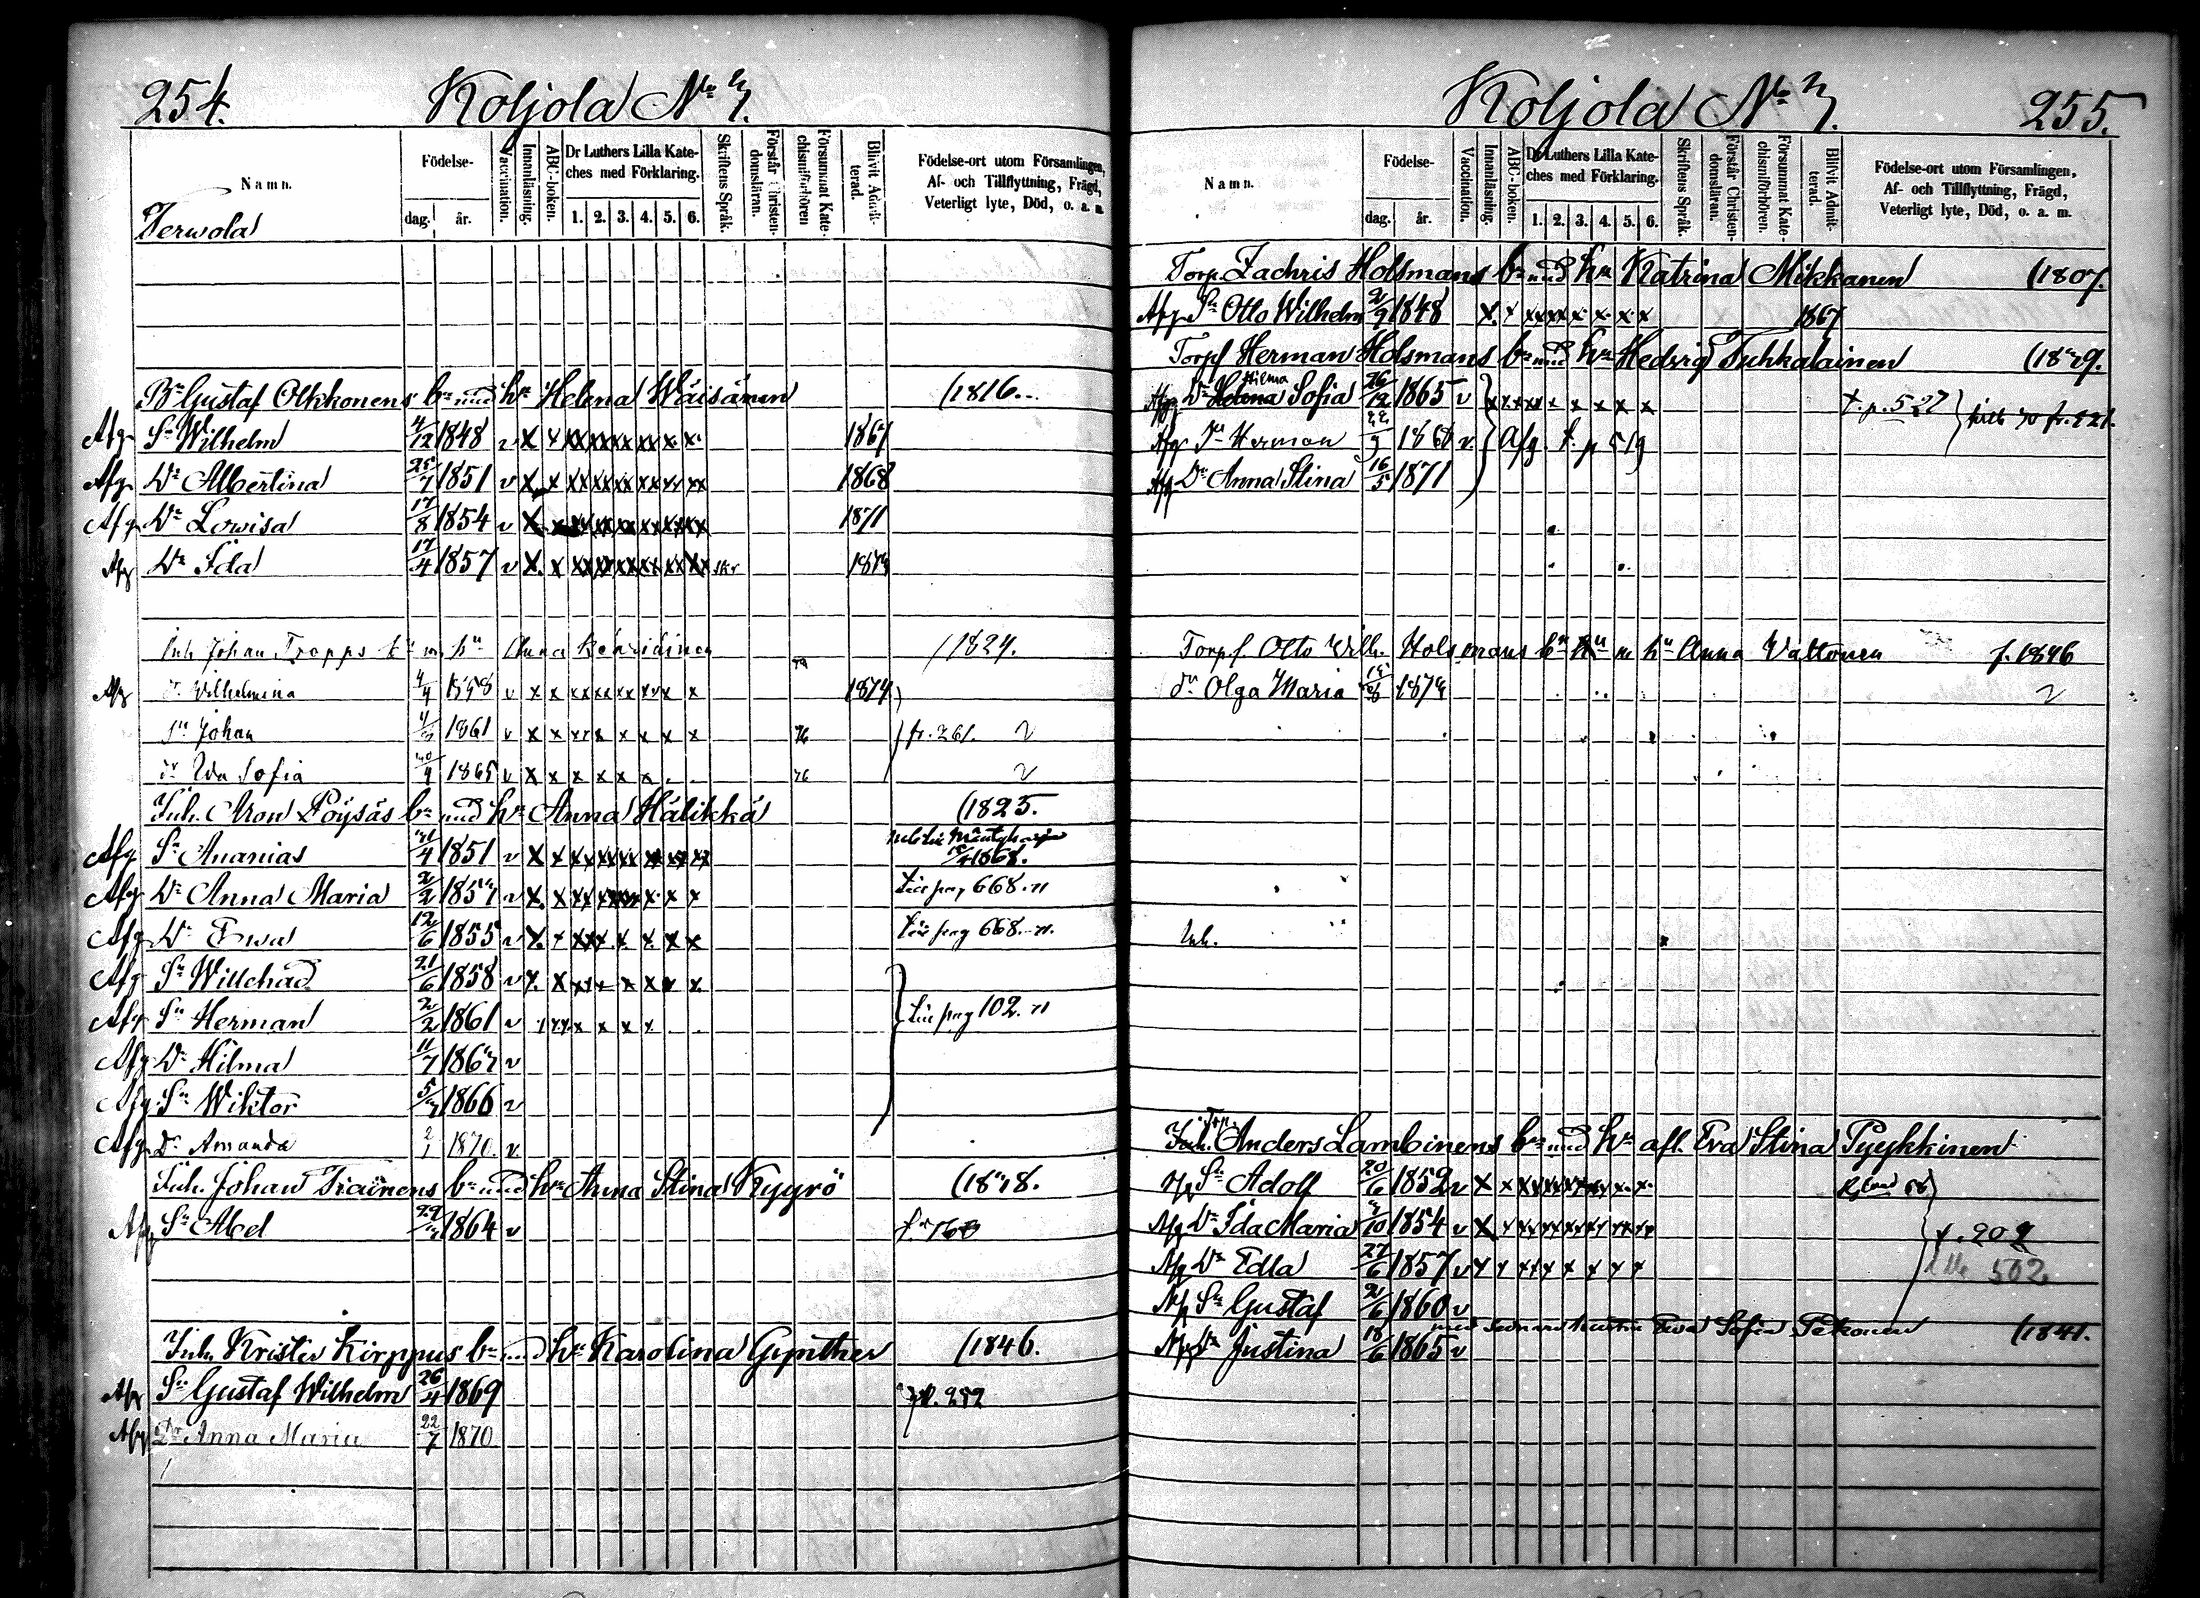 254. Koljola No 3.
Namn.
Födelse-
dag. år.
Vaccination.
Innanläsning.
ABC-boken.
Dr Luthers Lilla Kate-
ches med Förklaring.
1. 2. 3. 4. 5. 6.
Skriftens Språk.
Förstår Christen-
domsläran.
Försummat Kate-
chismiförhören
Blifvit Admit-
terad.
Födelse-ort utom Församlingen,
Af- och Tillflyttning, Frägd,
Veterligt lyte, Död, o. a. m.
Terwola
Bn Gustaf Olkkonens bn med hu Helena Wäisänen (1816.
Afg. Sn Wilhelm 4/12 1848 v x x xx xx xx xx x x 1867
Afg. Dr Albertina 25/7 1851 v x x xx xx xx xx xx xx 1868
Afg. Dr Lowisa 17/8 1854 v x x xx xx xx xx xx xx 1871
Afg Dr Ida 17/4 1857 v x x xx xx xx xx xx xx
Inh. Johan Tropps bn m. hu Anna (1824.
Afg dr Wilhelmina 4/4 1858 v x x xx xx xx xx x x 1874
sn Johan 1861 v x x xx x x x x x 76 fr. 261. v
dr Ida Sofia 1865 v x x x x x x 76 v
Inh. Aron Pöysäs bn med hu Anna Hälikkä (1825.
Afg Sn Ananias 1851 v x x xx xx xx xx xx xx 1868.
Afg Dr Anna Maria 2/2 1853 v x x xx xx xx x x x pag 668.
Afg Dr Ewa 12/6 1855 v x x xx x x x x x pag 668.
Afg Sn Willehad 21/6 1858 v x x xx x x x x x
Afg Sn Herman 2/2 1861 v x xx x x x x pag 102.
Afg Dr Hilma 11/7 1863 v
Afg Sn Wiktor 5/3 1866 v
Afg Dr Amanda 2/1 1870 v
Inh. Johan Träinens bn med hu Anna Stina Kyyrö (1838.
Afg Sn Abel 1864 v
Inh. Krister Kirppus bn med hu Karolina Gynther (1846.
Afg Sn Gustaf Wilhelm 26/4 1869
Afg Dr Anna Maria 22/7 1870
Koljola No 3. 255.
Namn.
Födelse-
dag. år.
Vaccination.
Innanläsning.
ABC-boken.
Dr Luthers Lilla Kate-
ches med Förklaring.
1. 2. 3. 4. 5. 6.
Skriftens Språk.
Förstår Christen-
domsläran.
Försummat Kate-
chismiförhören.
Blifvit Admit-
terad.
Födelse-ort utom Församlingen,
Af- och Tillflyttning, Frägd,
Veterligt lyte, Död, o. a. m.
Torp. Zachris Holsmans bn med hu Katrina Mikkanen (1807.
Afg Sn Otto Wilhelm 2/9 1848 x x xx xx x x x x 1867
Torpf Herman Holsmans bn med hu Hedvig Tuhkalainen (1839.
Afg Dr Helena Hilma Sofia 26/12 1865 v x x xx x x x x x t. p. 527
Afg Sn Herman 22/9 1868 v Afg. t. p 519
Afg Dr Anna Stina 16/5 1871
Torpf. Otto Wilh. Holsmans bn m hu Anna Valtonen f. 1846
dr Olga Maria 1873 v
Inh.
Inh. Torp. Anders Lambinens bn med hu afl. Eva Stina Pyykkinen
Afg Sn Adolf 20/6 1852 v x x xx xx xx xx x x
Afg Dr Ida Maria 1854 v x xx xx xx xx xx xx
Afg Dr Edla 27/6 1857 v x x xx xx x x x x 502
Afg Sn Gustaf 2/6 1860 v
med hustru Eva Sofia Pekonen (1841.
Afg Dr Justina 18/6 1865 v